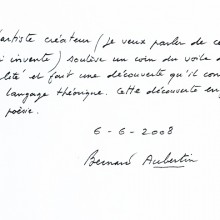 artiste créateur (je veux parler de ce
i invente) soulève un coin du voile d
lité et fait une découverte qu'il con
langage théorique. Cette découverte en
poésie.
6-6-2008
Bernard Aubertin